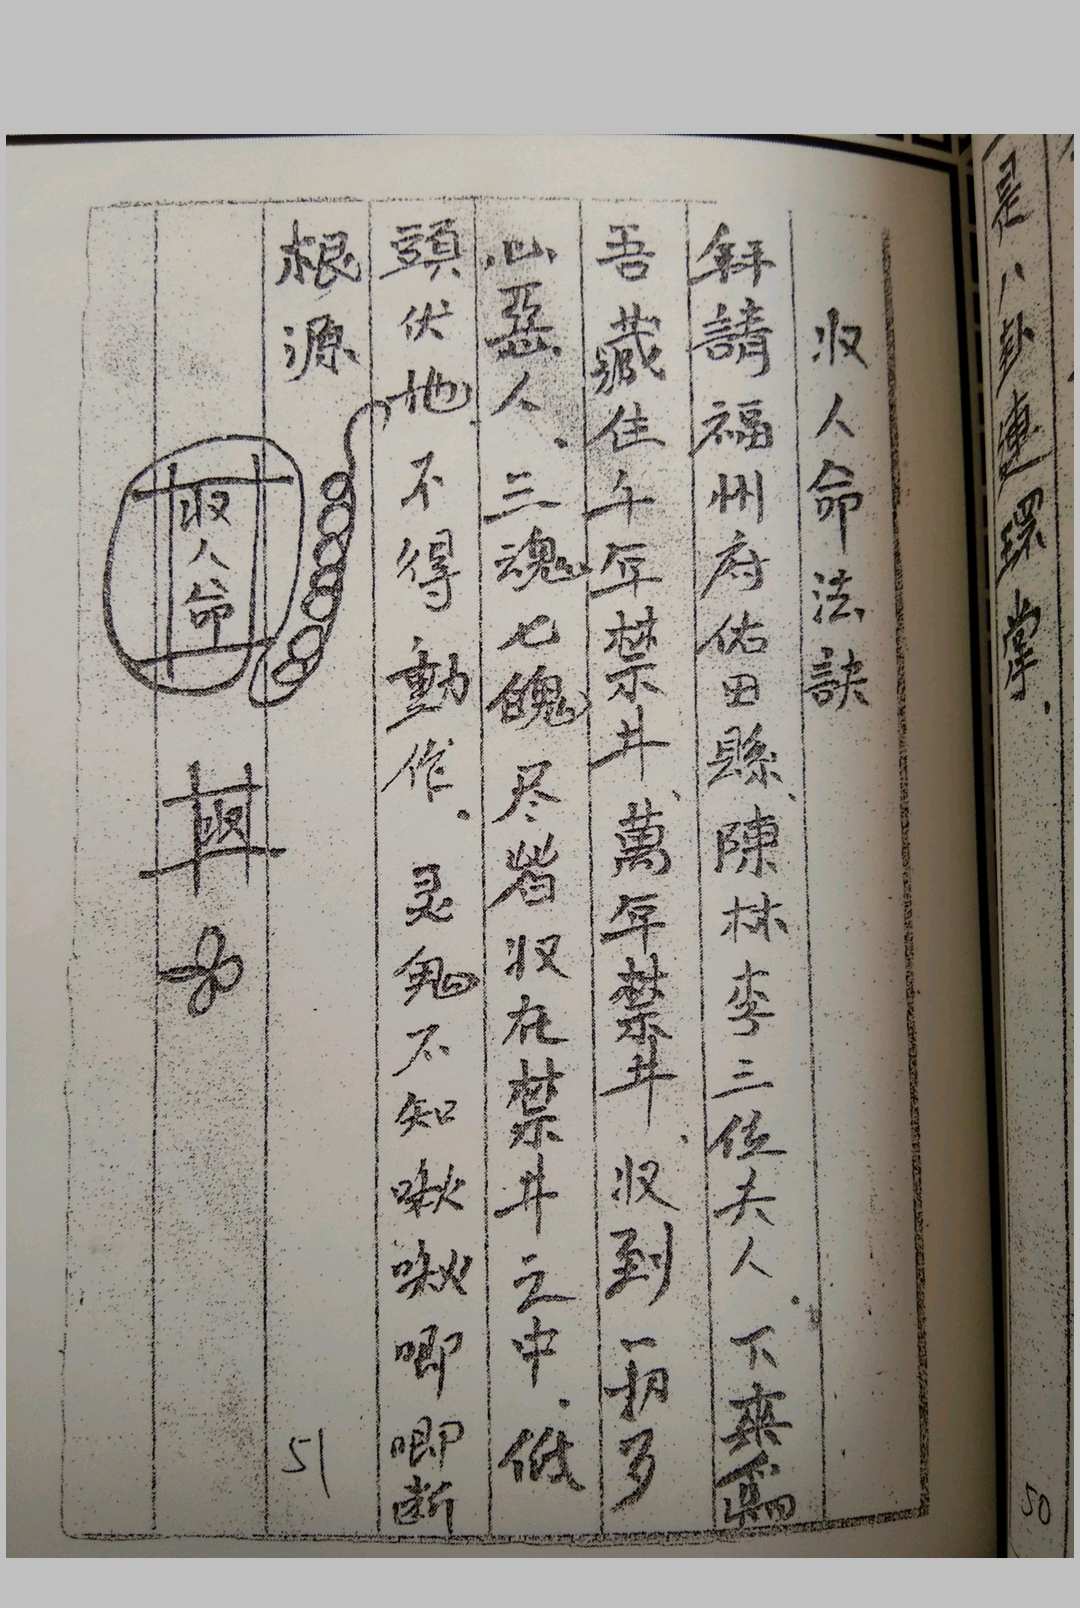 是八卦連環掌.
收人命法訣
拜請福州府佑田縣、陳林李三位夫人.下來為
吾藏住千年禁井、萬年禁井、收到一切多
心惡人.三魂七魄尽皆收在禁井之中.低
頭伏地不得動作.灵鬼不知啾啾唧唧断
根源
收人命
收
51
50